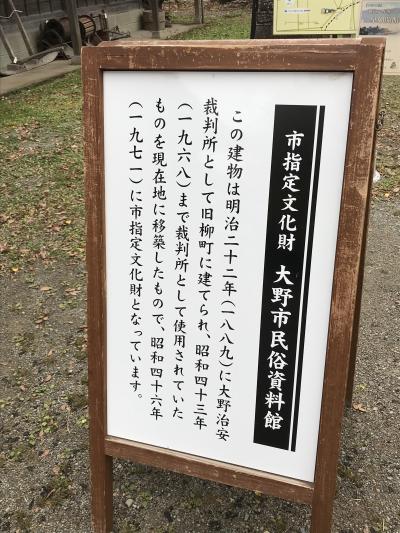 市指定文化財 大野市民俗資料館
この建物は明治二十二年(一八八九)に大野治安
裁判所として旧柳町に建てられ、昭和四十三年
(一九六八)まで裁判所として使用されていた
ものを現在地に移築したもので、昭和四十六年
(一九七一)に市指定文化財となっています。